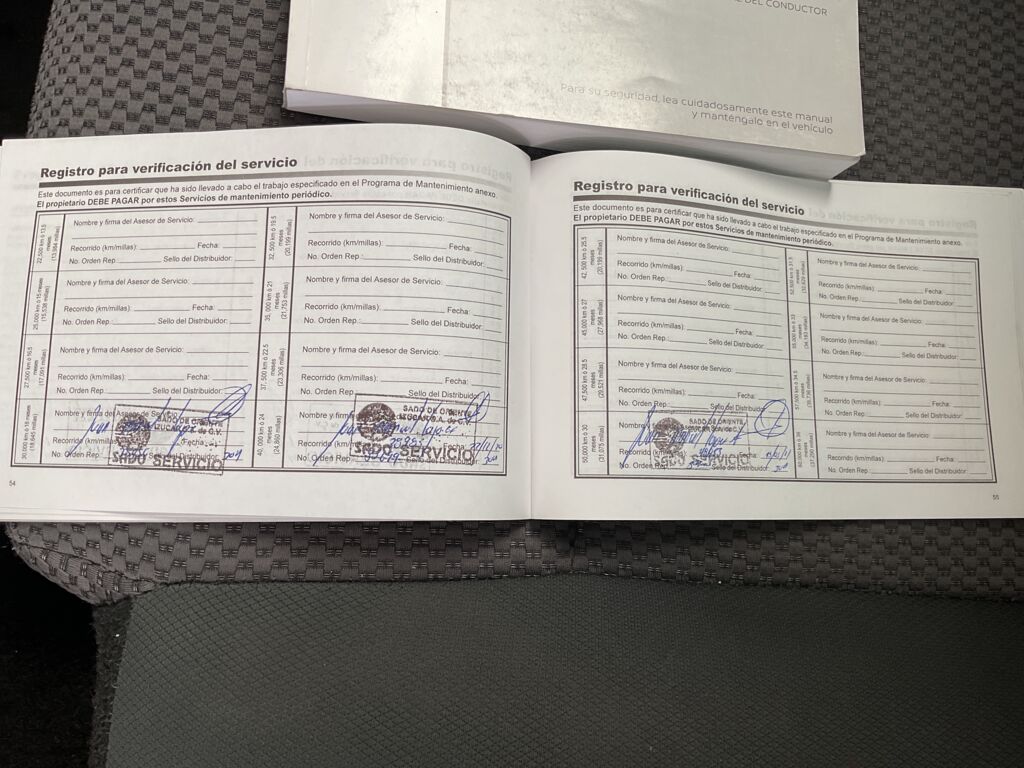 DEL CONDUCTOR
Para su seguridad, lea cuidadosamente este manual
y manténgalo en el vehículo
Registro para verificación del servicio
Este documento es para certificar que ha sido llevado a cabo el trabajo especificado en el Programa de Mantenimiento anexo.
El propietario DEBE PAGAR por estos Servicios de mantenimiento periódico.
22,500 km ó 13.5
meses
Nombre y firma del Asesor de Servicio:
Recorrido (km/millas): Fecha:
No. Orden Rep.: Sello del Distribuidor:
25,000 km ó 15 meses
(15,538 millas)
Nombre y firma del Asesor de Servicio:
Recorrido (km/millas): Fecha:
No. Orden Rep.: Sello del Distribuidor:
27,500 km ó 16.5
meses
Nombre y firma del Asesor de Servicio:
Recorrido (km/millas): Fecha:
No. Orden Rep.: Sello del Distribuidor:
30,000 km ó 18 meses
(18,645 millas)
Nombre y firma del Asesor de Servicio:
Recorrido (km/millas): Fecha:
No. Orden Rep.:
SADO DE ORIENTE
S.A. de C.V.
SADO SERVICIO
32,500 km ó 19.5
meses
(20,199 millas)
Nombre y firma del Asesor de Servicio:
Recorrido (km/millas): Fecha:
No. Orden Rep.: Sello del Distribuidor:
35,000 km ó 21
meses
(21,753 millas)
Nombre y firma del Asesor de Servicio:
Recorrido (km/millas): Fecha:
No. Orden Rep.: Sello del Distribuidor:
37,500 km ó 22.5
meses
(23,306 millas)
Nombre y firma del Asesor de Servicio:
Recorrido (km/millas): Fecha:
No. Orden Rep.: Sello del Distribuidor:
40,000 km ó 24
meses
(24,860 millas)
Nombre y firma
Recorrido (km/millas): Fecha:
No. Orden Rep.: Sello del Distribuidor:
SADO DE ORIENTE
S.A. de C.V.
SADO SERVICIO
54
Registro para verificación del servicio
Este documento es para certificar que ha sido llevado a cabo el trabajo especificado en el Programa de Mantenimiento anexo.
El propietario DEBE PAGAR por estos Servicios de mantenimiento periódico.
42,500 km ó 25.5
meses
Nombre y firma del Asesor de Servicio:
Recorrido (km/millas): Fecha:
No. Orden Rep.: Sello del Distribuidor:
45,000 km ó 27
meses
Nombre y firma del Asesor de Servicio:
Recorrido (km/millas): Fecha:
No. Orden Rep.: Sello del Distribuidor:
47,500 km ó 28.5
meses
Nombre y firma del Asesor de Servicio:
Recorrido (km/millas): Fecha:
No. Orden Rep.: Sello del Distribuidor:
50,000 km ó 30
meses
(31,075 millas)
Nombre y
Recorrido (km/millas): Fecha:
No. Orden Rep.:
SADO DE ORIENTE
SADO SERVICIO
Nombre y firma del Asesor de Servicio:
Recorrido (km/millas): Fecha:
No. Orden Rep.: Sello del Distribuidor:
Nombre y firma del Asesor de Servicio:
Recorrido (km/millas): Fecha:
No. Orden Rep.: Sello del Distribuidor:
Nombre y firma del Asesor de Servicio:
Recorrido (km/millas): Fecha:
No. Orden Rep.: Sello del Distribuidor:
Nombre y firma del Asesor de Servicio:
Recorrido (km/millas): Fecha:
No. Orden Rep.: Sello del Distribuidor:
55